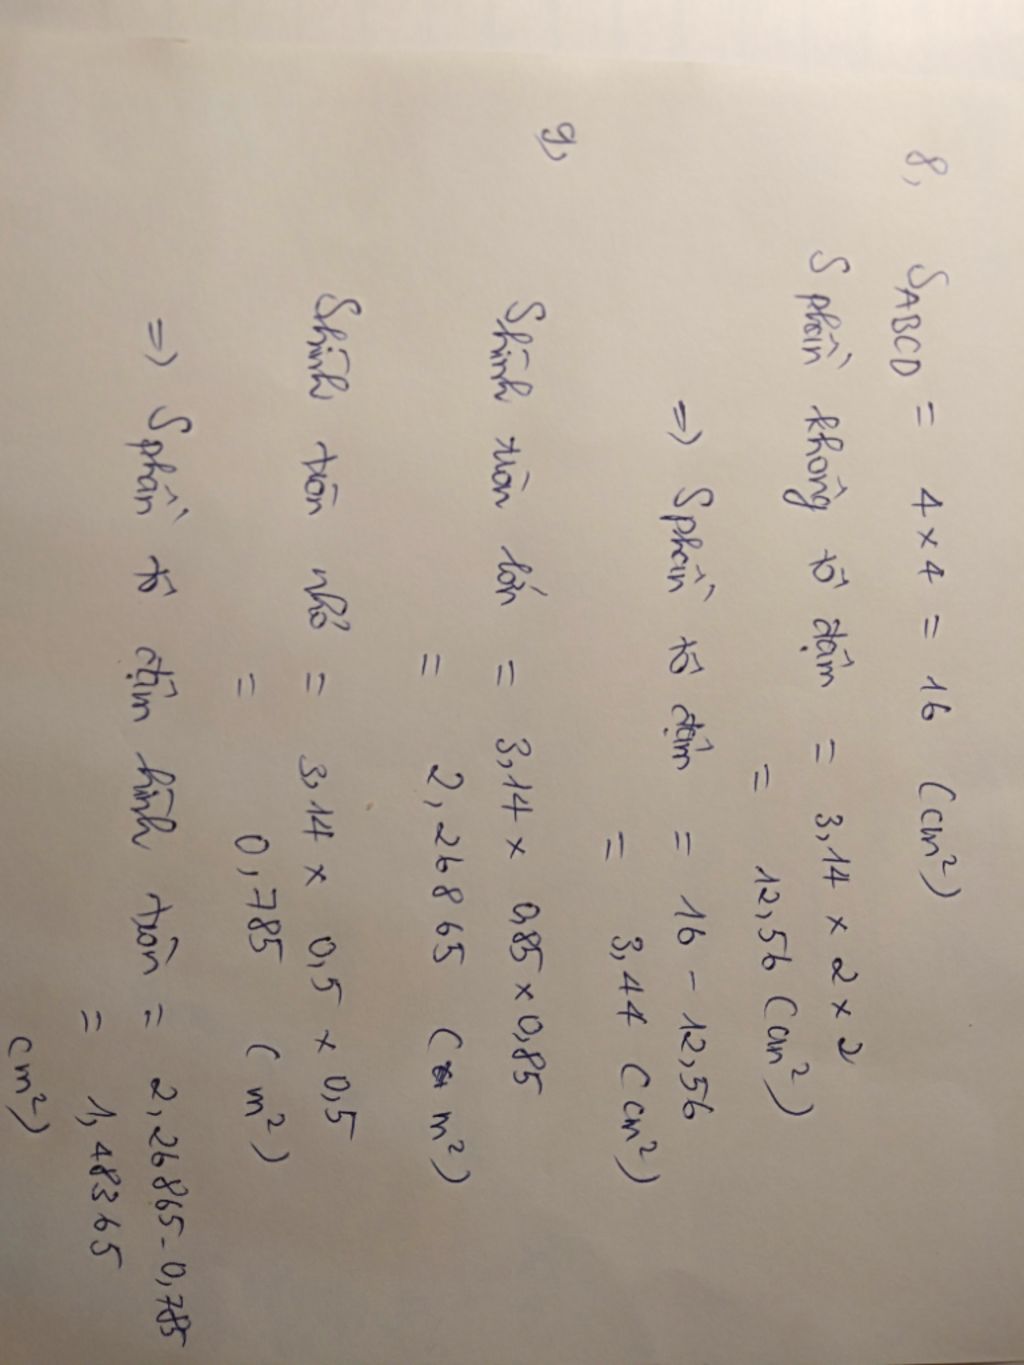 8,
S ABCD = 4 × 4 = 16 (cm²)
S phần không tô đậm = 3,14 × 2 × 2
= 12,56 (cm²)
=> S phần tô đậm = 16 - 12,56
= 3,44 (cm²)
9,
S hình tròn lớn = 3,14 × 0,85 × 0,85
= 2,26865 (m²)
S hình tròn nhỏ = 3,14 × 0,5 × 0,5
= 0,785 (m²)
=> S phần tô đậm hình tròn = 2,26865 - 0,785
= 1,48365
(m²)